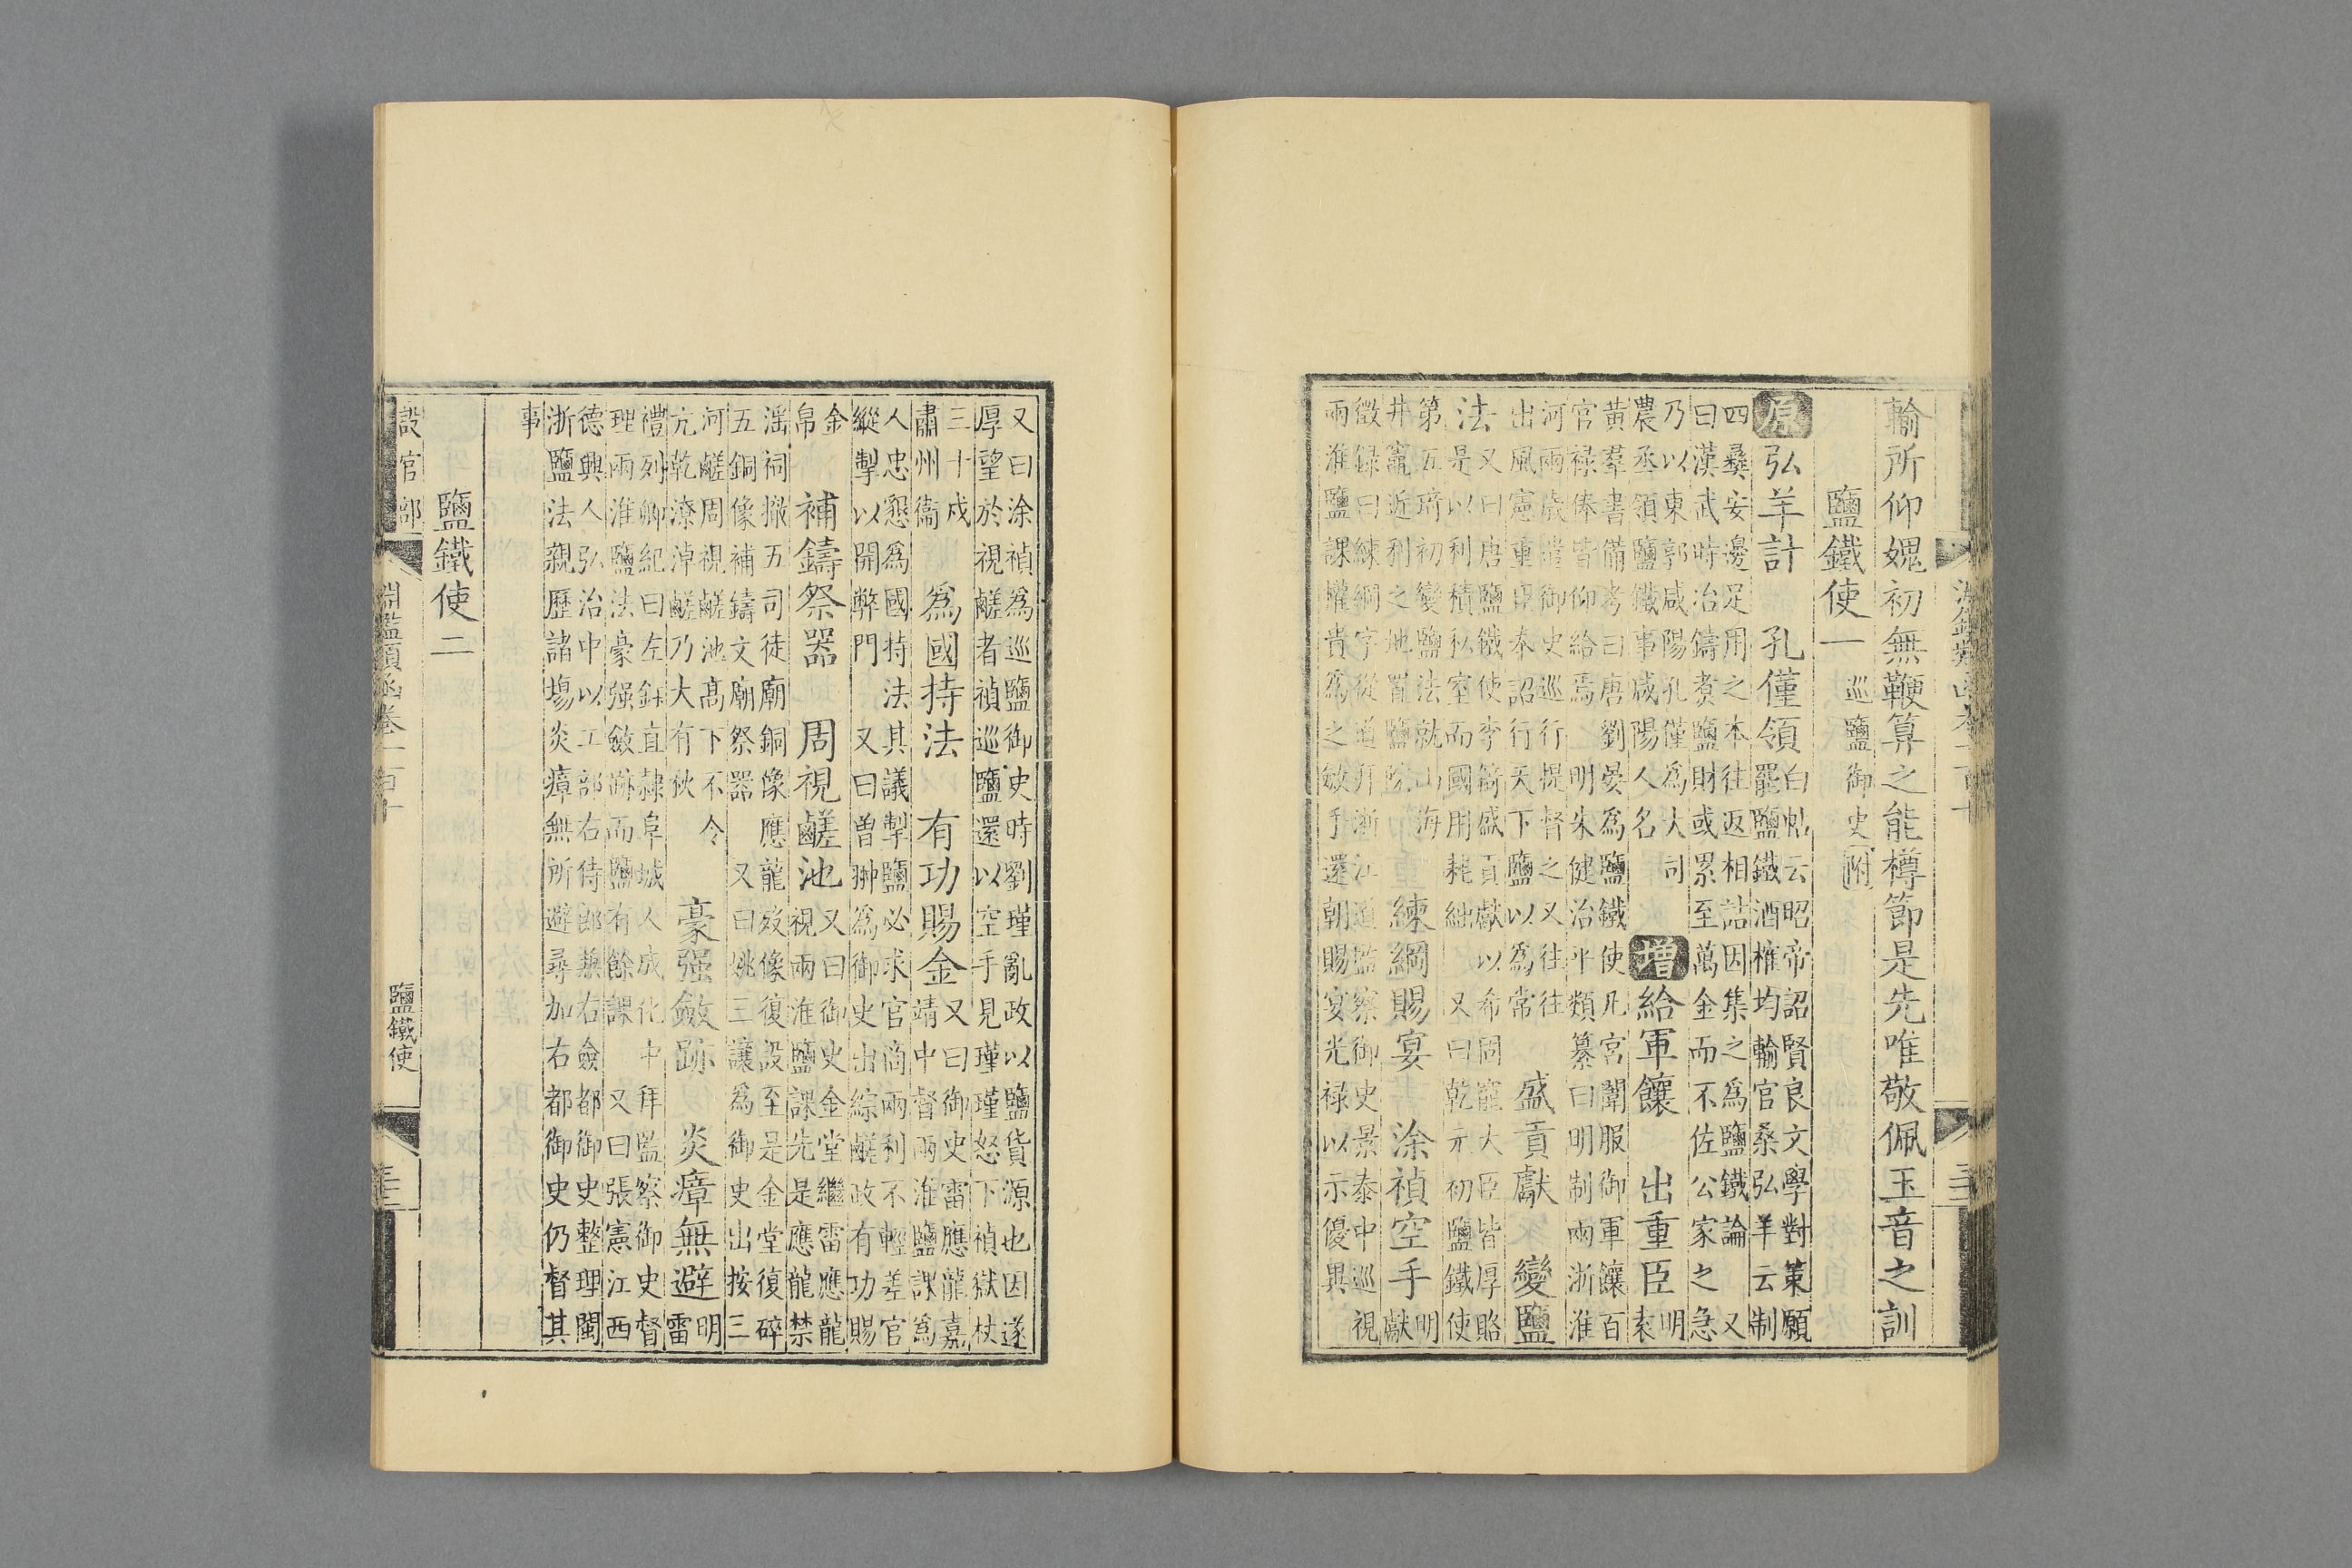 輸所仰媿初無鞭算之能樽節是先唯敬佩玉音之訓
鹽鐵使一 巡鹽御史附
原弘羊計 孔僅領
白帖云昭帝詔賢良文學對策願
罷鹽鐵酒榷均輸官桑弘羊云制
四彞安邊足用之本往返相詰因集之為鹽鐵論 又
曰漢武時冶鑄煮鹽財或累至萬金而不佐公家之急
乃以東郭咸陽孔僅為大司
農丞領鹽鐵事咸陽人名
增給軍饟 出重臣
明
袁
黃羣書備考曰唐劉晏為鹽鐵使凡宮闈服御軍饟百
官禄俸皆仰給焉 明朱健治平類纂曰明制兩浙淮
河兩歲遣御史巡行提督之又往往
出風憲重臣奉詔行天下鹽以為常
盛貢獻 變鹽
法
又曰唐鹽鐵使李錡盛貢獻以希固寵大臣皆厚賂
是以利積私室而國用耗絀 又曰乾元初鹽鐵使
第五琦初變鹽法就山海
井竈近利之地置鹽院
練綱賜宴 涂禎空手
明
獻
徵録曰練綱字從道拜浙江道監察御史景泰中巡視
兩淮鹽課權貴為之斂手還朝賜宴光禄以示優異
又曰涂禎為巡鹽御史時劉瑾亂政以鹽貨源也因遂
厚望於視鹺者禎巡鹽還以空手見瑾瑾怒下禎獄杖
三十戍
肅州衞
為國持法 有功賜金
又曰御史雷應龍嘉
靖中督兩淮鹽課為
人忠懇為國持法其議掣鹽必求官商兩利不輕差官
縱掣以開弊門 又曰曾翀為御史出綜鹺政有功賜
金
帛
補鑄祭器 周視鹺池
又曰御史金堂繼雷應龍
視兩淮鹽課先是應龍禁
滛祠撤五司徒廟銅像應龍歿像復設至是金堂復碎
五銅像補鑄文廟祭器 又曰姚三讓為御史出按三
河鹺周視鹺池高下不令
亢乾潦淖鹺乃大有秋
豪强斂跡 炎瘴無避
明
雷
禮列卿紀曰左鈺直隷阜城人成化中拜監察御史督
理兩淮鹽法豪强斂跡而鹽有餘課 又曰張憲江西
德興人弘治中以工部右侍郎兼右僉都御史整理閩
浙鹽法親歷諸塲炎瘴無所避尋加右都御史仍督其
事
鹽鐵使二
設官部 淵鑑類函卷一百十 鹽鐵使